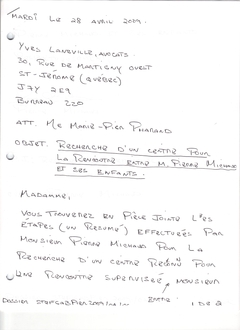 MARDI LE 28 AVRIL 2009.
YVES LANGVILLE, AVOCATS.
20, RUE DE MARTIGNY OUEST
ST-JÉRÔME (QUÉBEC)
J7Y 2E9
BUREAU 220
ATT. ME MARIE-PIER
OBJET. RECHERCHE D'UN CENTRE POUR
LA RENCONTRE ENTRE M. PIERRE MICHAUD
ET SES ENFANTS.
MADAME,
VOUS TROUVEREZ EN PIÈCE JOINTE LES
ÉTAPES (UN RÉSUMÉ) EFFECTUÉES PAR
MONSIEUR PIERRE MICHAUD POUR LA
RECHERCHE D'UN CENTRE RECONNU POUR
UNE RENCONTRE SUPERVISÉE, MONSIEUR
DOSSIER 1 DE 2